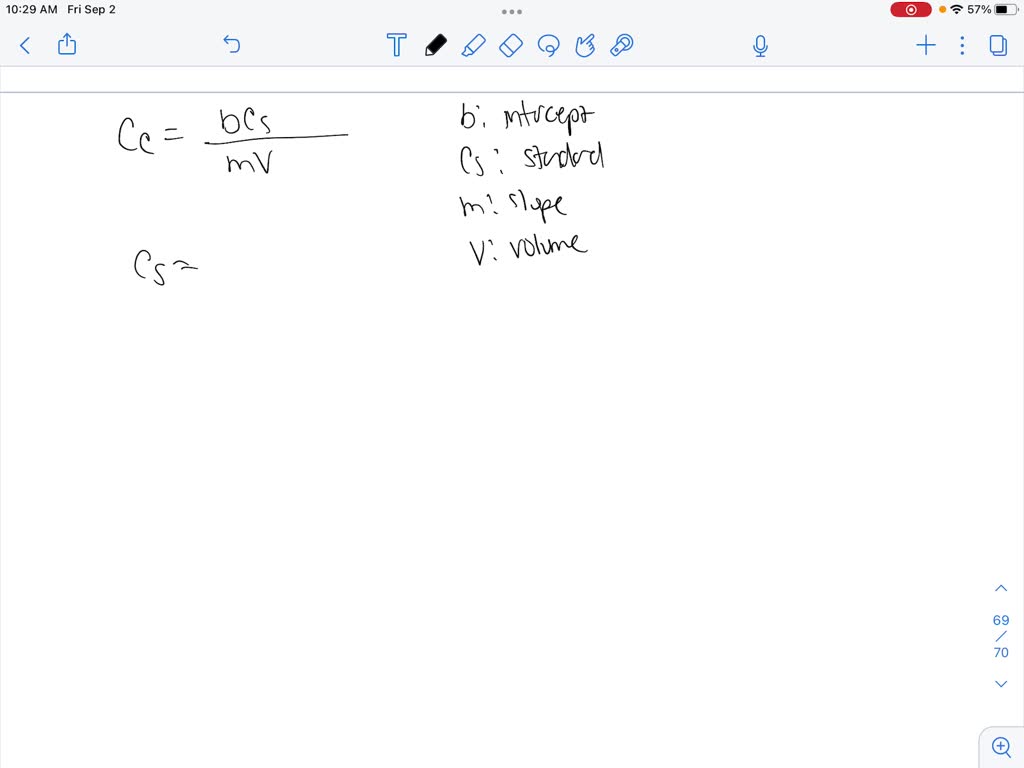 10:29 AM Fri Sep 2
57%
T
Cc = bCs
mV
b: intercept
Cs: standard
m: slope
V: volume
Cs =
69
/
70